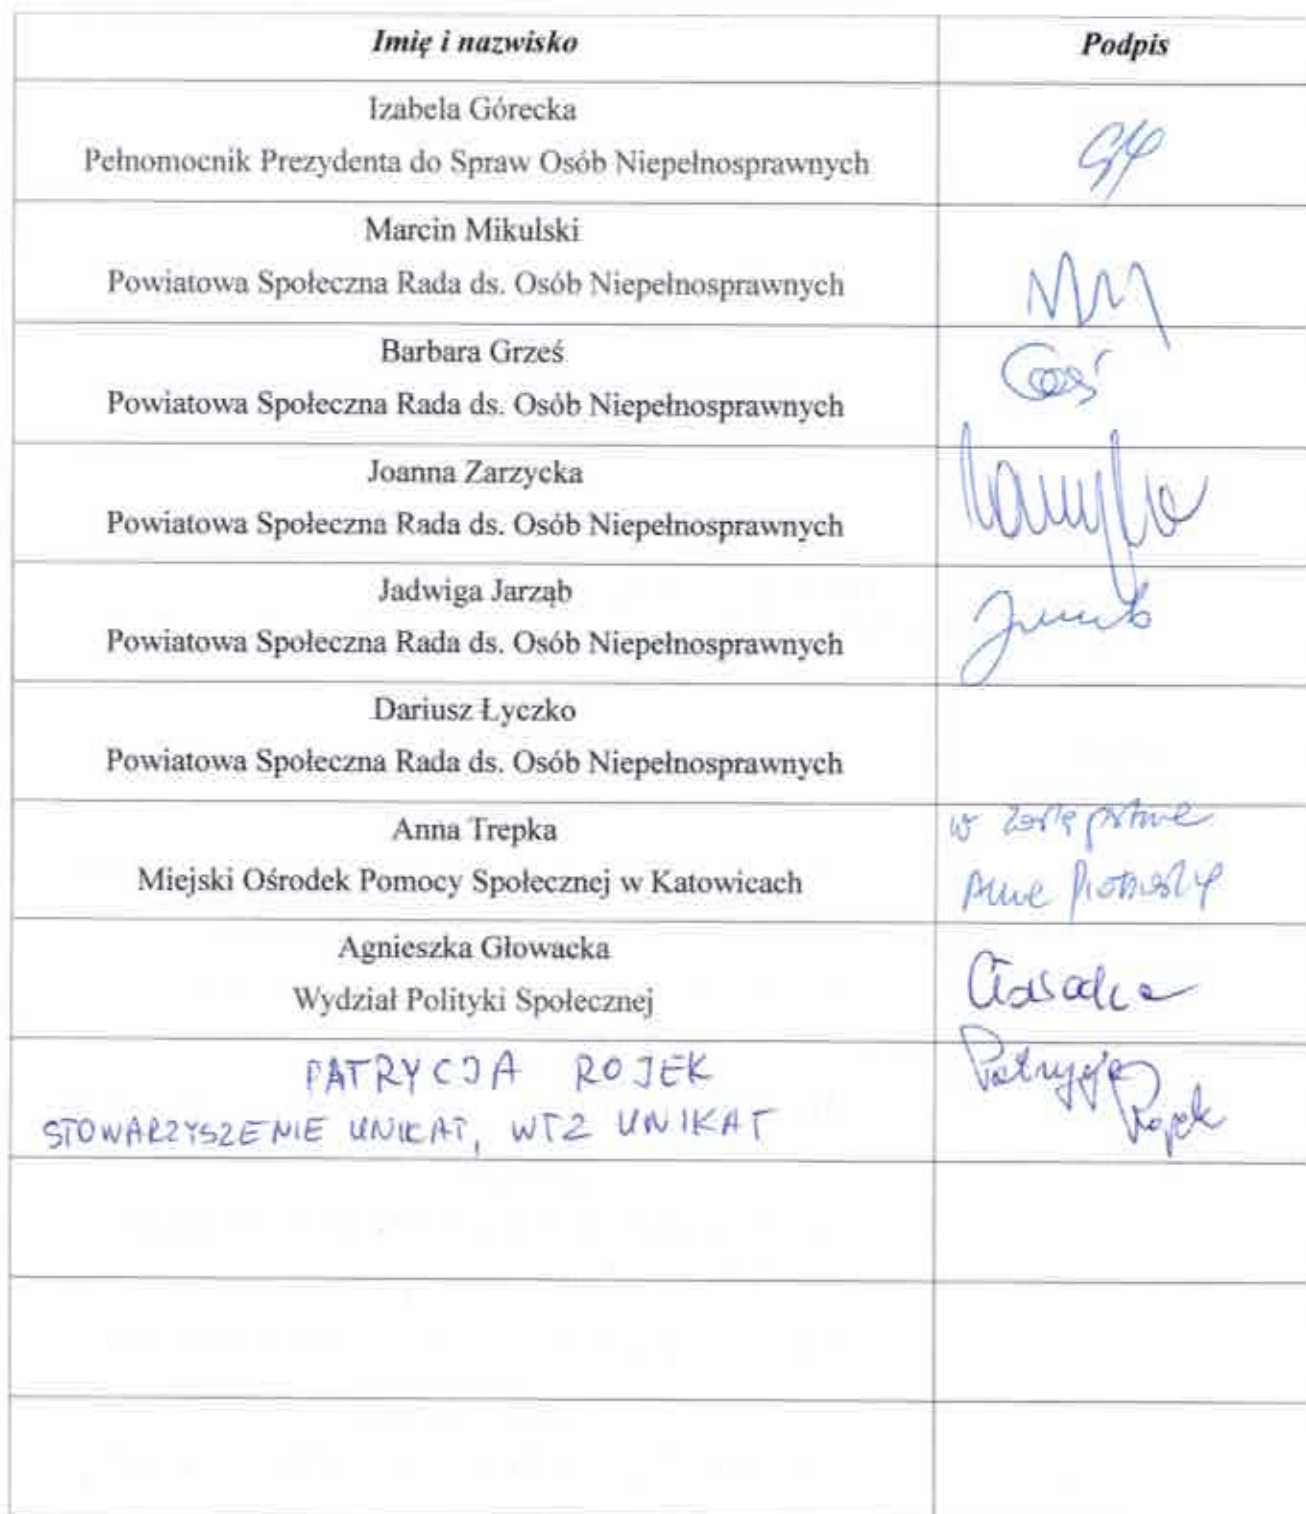 Imię i nazwisko
Podpis
Izabela Górecka
Pełnomocnik Prezydenta do Spraw Osób Niepełnosprawnych
Marcin Mikulski
Powiatowa Społeczna Rada ds. Osób Niepełnosprawnych
Barbara Grześ
Powiatowa Społeczna Rada ds. Osób Niepełnosprawnych
Joanna Zarzycka
Powiatowa Społeczna Rada ds. Osób Niepełnosprawnych
Jadwiga Jarząb
Powiatowa Społeczna Rada ds. Osób Niepełnosprawnych
Dariusz Łyczko
Powiatowa Społeczna Rada ds. Osób Niepełnosprawnych
Anna Trepka
Miejski Ośrodek Pomocy Społecznej w Katowicach
w
Agnieszka Głowacka
Wydział Polityki Społecznej
PATRYCJA ROJEK
STOWARZYSZENIE UNIKAT, WTZ UNIKAT
Patrycja
Rojek